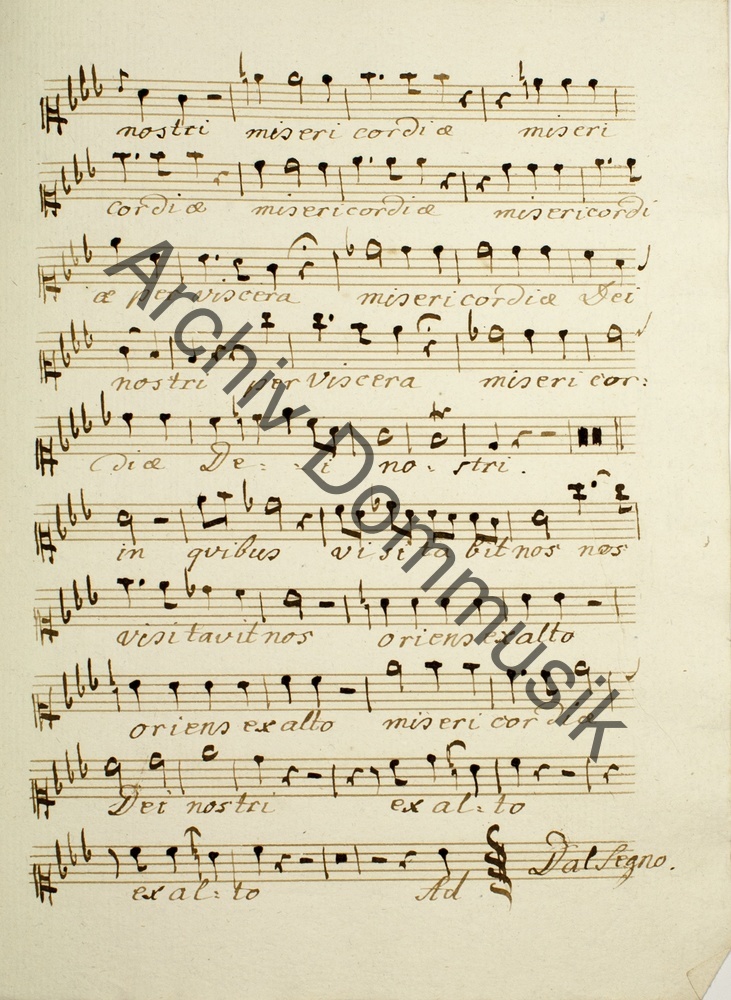 nostri miseri cordiæ miseri
cordiæ misericordiæ misericordi
æ per viscera misericordiæ Dei
nostri per Viscera miseri cor:
diæ De: - i no - stri.
in quibus visitabit nos nos
visitavit nos oriens ex alto
oriens ex alto misericordiæ
Dei nostri ex al: to
Dal Segno.
ex al: to Ad
Archiv Dommusik